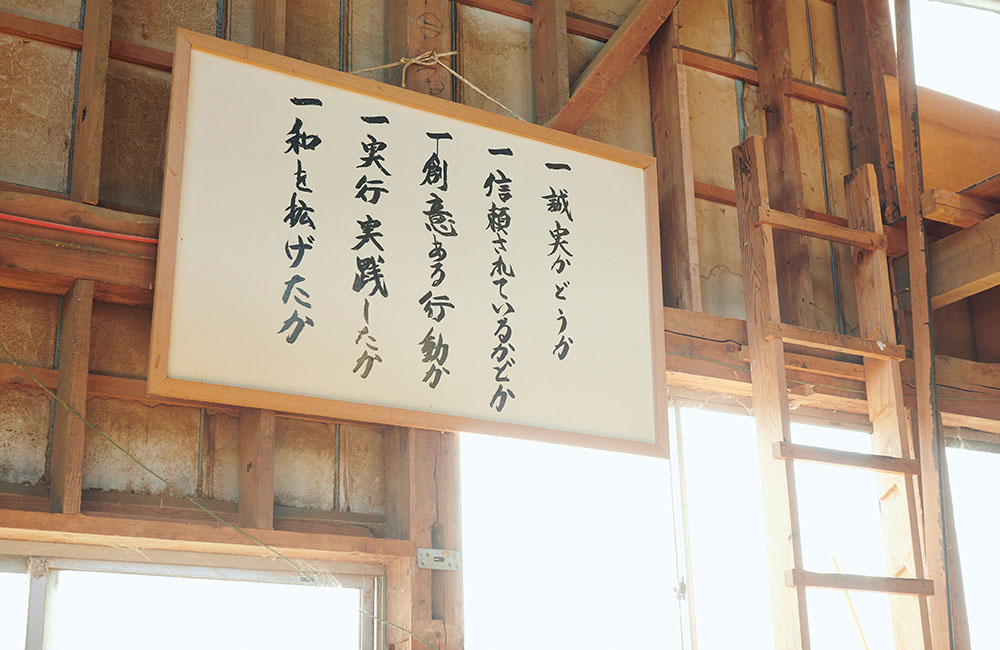 一 誠実かどうか
一 信頼されているかどか
一 創意ある行動か
一 実行実践したか
一 和を拡げたか